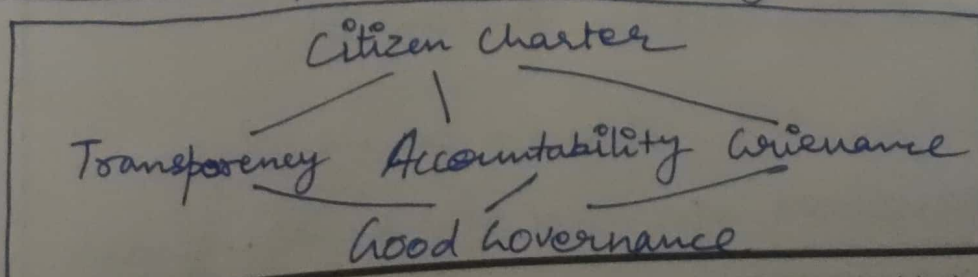 Citizen Charter
Transparency Accountability Grievance
Good Governance